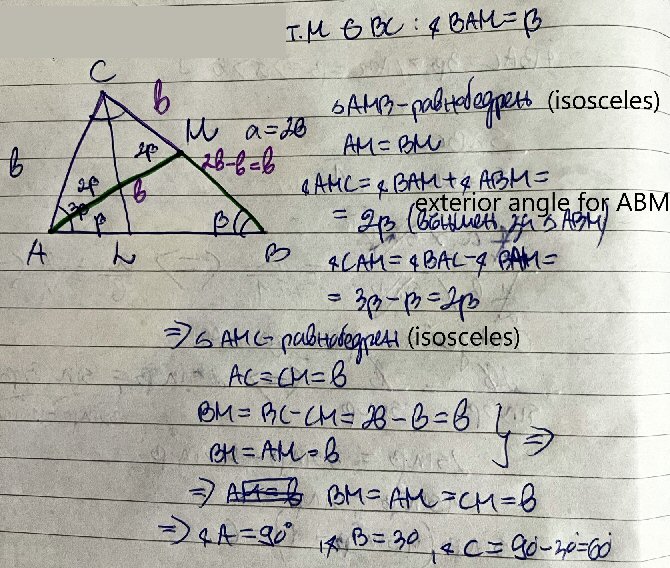 т. M ∈ BC : ∢BAM = β
C
b
M a = 2b
b
2β
2b-b=b
2β
b
3β
β
β
A L B
△AMB - равнобедрен (isosceles)
AM = BM
∢AMC = ∢BAM + ∢ABM =
exterior angle for ABM
= 2β (външен за △ABM)
∢CAM = ∢BAC - ∢BAM =
= 3β - β = 2β
⇒ △AMC - равнобедрен (isosceles)
AC = CM = b
BM = BC - CM = 2b - b = b
BM = AM = b
} ⇒
⇒ BM = AM = CM = b
⇒ ∢A = 90°, ∢B = 30, ∢C = 90°-30°=60°